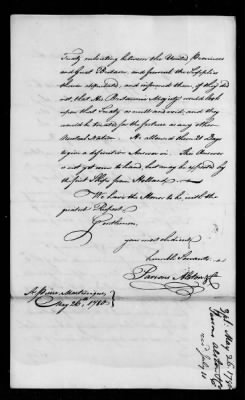 Treaty subsisting between the United Provinces
and Great Britain, and furnish the Supplies
therein stipulated, and informed them, if they did
not, that His Britannic Majesty would look
upon that Treaty as null and void, and they
would be treated for the future as any other
Neutral Nation. He allowed them 21 Days
to give a definitive Answer in. This Answer
is not yet come to hand, but may be expected by
the first Ships from Holland.
We have the Honor to be with the
greatest Respect
Gentlemen,
your most obedient
humble Servants
Parsons Alston &Co
St. Pierre Martinique,
May 26th 1780
Lr. May 26. 1780
Parsons Alston & Co
recd July 11